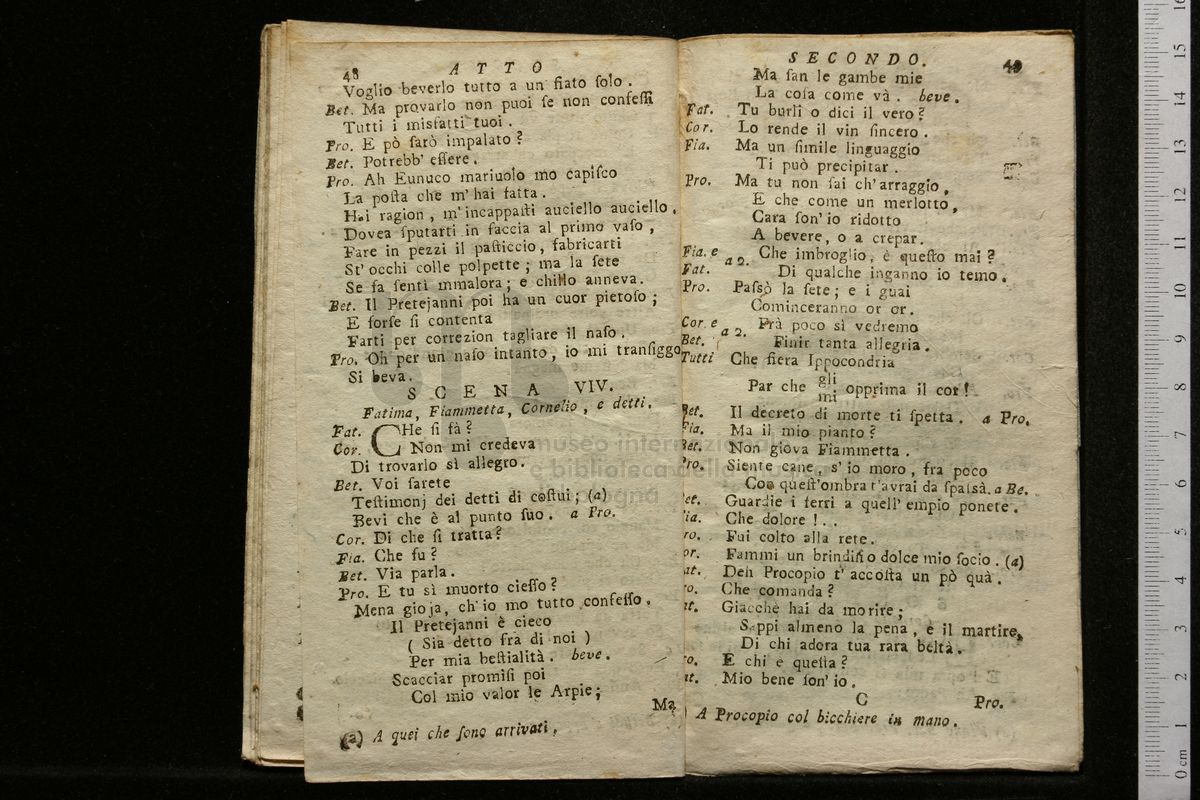 48 ATTO
Voglio beverlo tutto a un fiato ſolo.
Bet. Ma provarlo non puoi ſe non confeſſi
Tutti i misfatti tuoi.
Pro. E pò ſarò impalato?
Bet. Potrebb' eſſere.
Pro. Ah Eunuco mariuolo mo capiſco
La poſta che m' hai fatta.
Hai ragion, m' incappaſti auciello auciello,
Dovea ſputarti in faccia al primo vaſo,
Fare in pezzi il paſticcio, fabricarti
St' occhi colle polpette; ma la ſete
Se fa ſentì mmalora; e chillo anneva.
Bet. Il Pretejanni poi ha un cuor pietoſo;
E forſe ſi contenta
Farti per correzion tagliare il naſo.
Pro. Oh per un naſo intanto, io mi tranſiggo
Si beva.
SCENA VIV.
Fatima, Fiammetta, Cornelio, e detti.
Fat. CHe ſi fà?
Cor. Non mi credeva
Di trovarlo sì allegro.
Bet. Voi ſarete
Teſtimonj dei detti di coſtui; (a)
Bevi che è al punto ſuo. a Pro.
Cor. Di che ſi tratta?
Fia. Che fu?
Bet. Via parla.
Pro. E tu sì muorto cieſſo?
Mena gioja, ch' io mo tutto confeſſo.
Il Pretejanni è cieco
( Sia detto fra di noi )
Per mia beſtialità. beve.
Scacciar promiſi poi
Col mio valor le Arpie;
Ma
(a) A quei che ſono arrivati.
SECONDO. 49
Ma ſan le gambe mie
La coſa come và. beve.
Fat. Tu burli o dici il vero?
Cor. Lo rende il vin ſincero.
Fia. Ma un ſimile linguaggio
Ti può precipitar.
Pro. Ma tu non ſai ch' arraggio,
E che come un merlotto,
Cara ſon' io ridotto
A bevere, o a crepar.
Fia. e Fat. a 2. Che imbroglio, è queſto mai?
Di qualche inganno io temo.
Pro. Paſsò la ſete; e i guai
Cominceranno or or.
Cor. e Bet. a 2. Frà poco sì vedremo
Finir tanta allegria.
Tutti Che fiera Ippocondria
Par che gli mi opprima il cor!
Bet. Il decreto di morte ti ſpetta. a Pro.
Fia. Ma il mio pianto?
Bet. Non giova Fiammetta.
Pro. Siente cane, s' io moro, fra poco
Con queſt' ombra t' avrai da ſpaſsà. a Be.
et. Guardie i ferri a quell' empio ponete.
ia. Che dolore!..
ro. Fui colto alla rete.
or. Fammi un brindiſi o dolce mio ſocio. (a)
at. Deh Procopio t' accoſta un pò quà.
ro. Che comanda?
at. Giacchè hai da morire;
Sappi almeno la pena, e il martire,
Di chi adora tua rara beltà.
ro. E chi è queſta?
at. Mio bene ſon' io.
C Pro.
) A Procopio col bicchiere in mano.